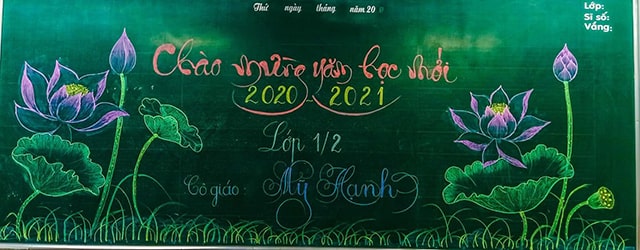 Thứ ngày tháng năm 20
Lớp:
Sĩ số:
Vắng:
Chào mừng năm học mới
2020 - 2021
Lớp 1/2
Cô giáo: Mỹ Hạnh